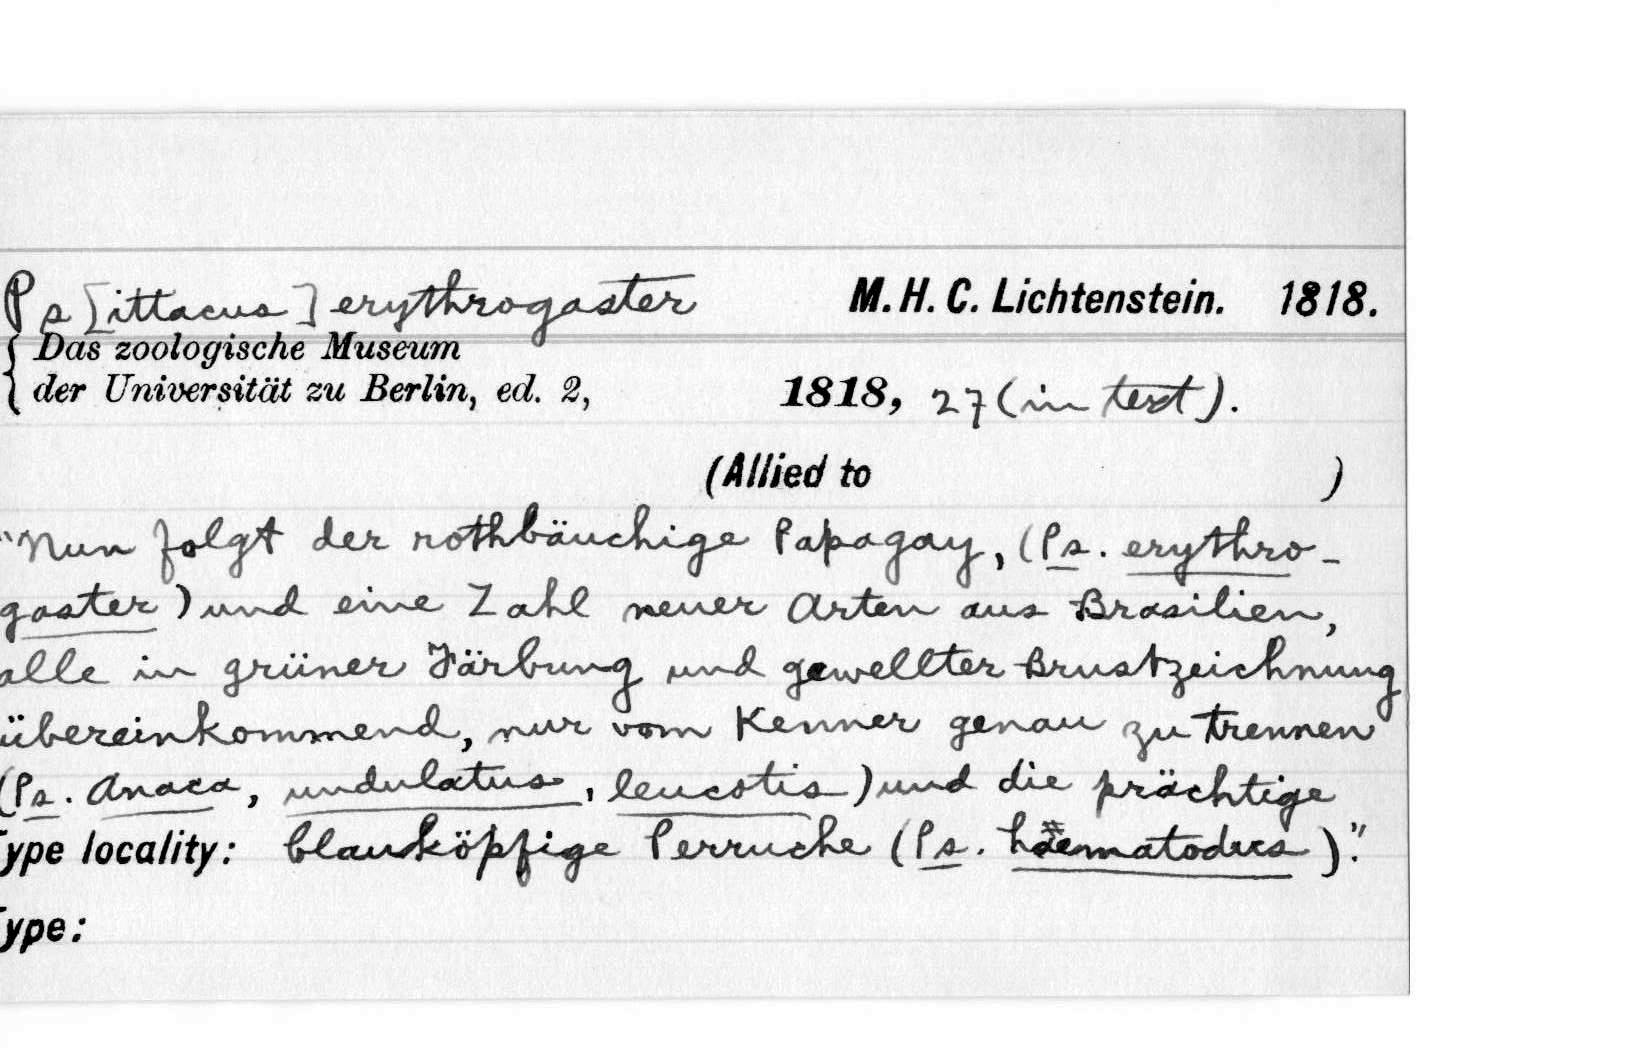 Ps[ittacus] erythrogaster M. H. C. Lichtenstein. 1818.
Das zoologische Museum
der Universität zu Berlin, ed. 2, 1818, 27 (in text).
(Allied to )
"Nun folgt der rothbäuchige Papagay, (Ps. erythro-
gaster) und eine Zahl neuer Arten aus Brasilien,
alle in grüner Färbung und gewellter Brustzeichnung
übereinkommend, nur vom Kenner genau zu trennen
(Ps. Anaca, undulatus, leucotis) und die prächtige
ype locality: blauköpfige Perruche (Ps. haematodus)."
ype: